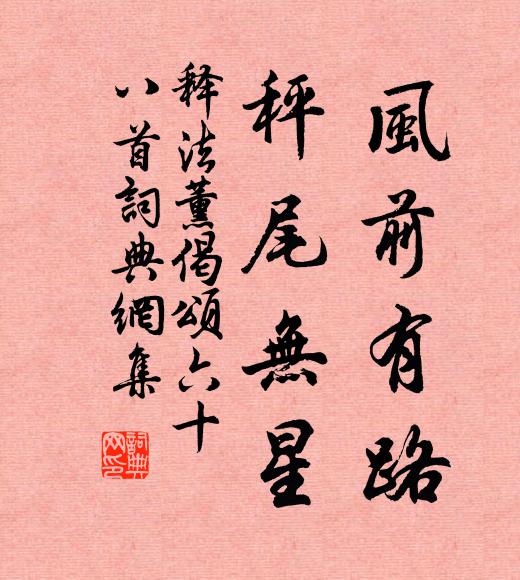 風前有路
秤尾無星
释法薰偈頌六十
八首詞典網集
詞典网印